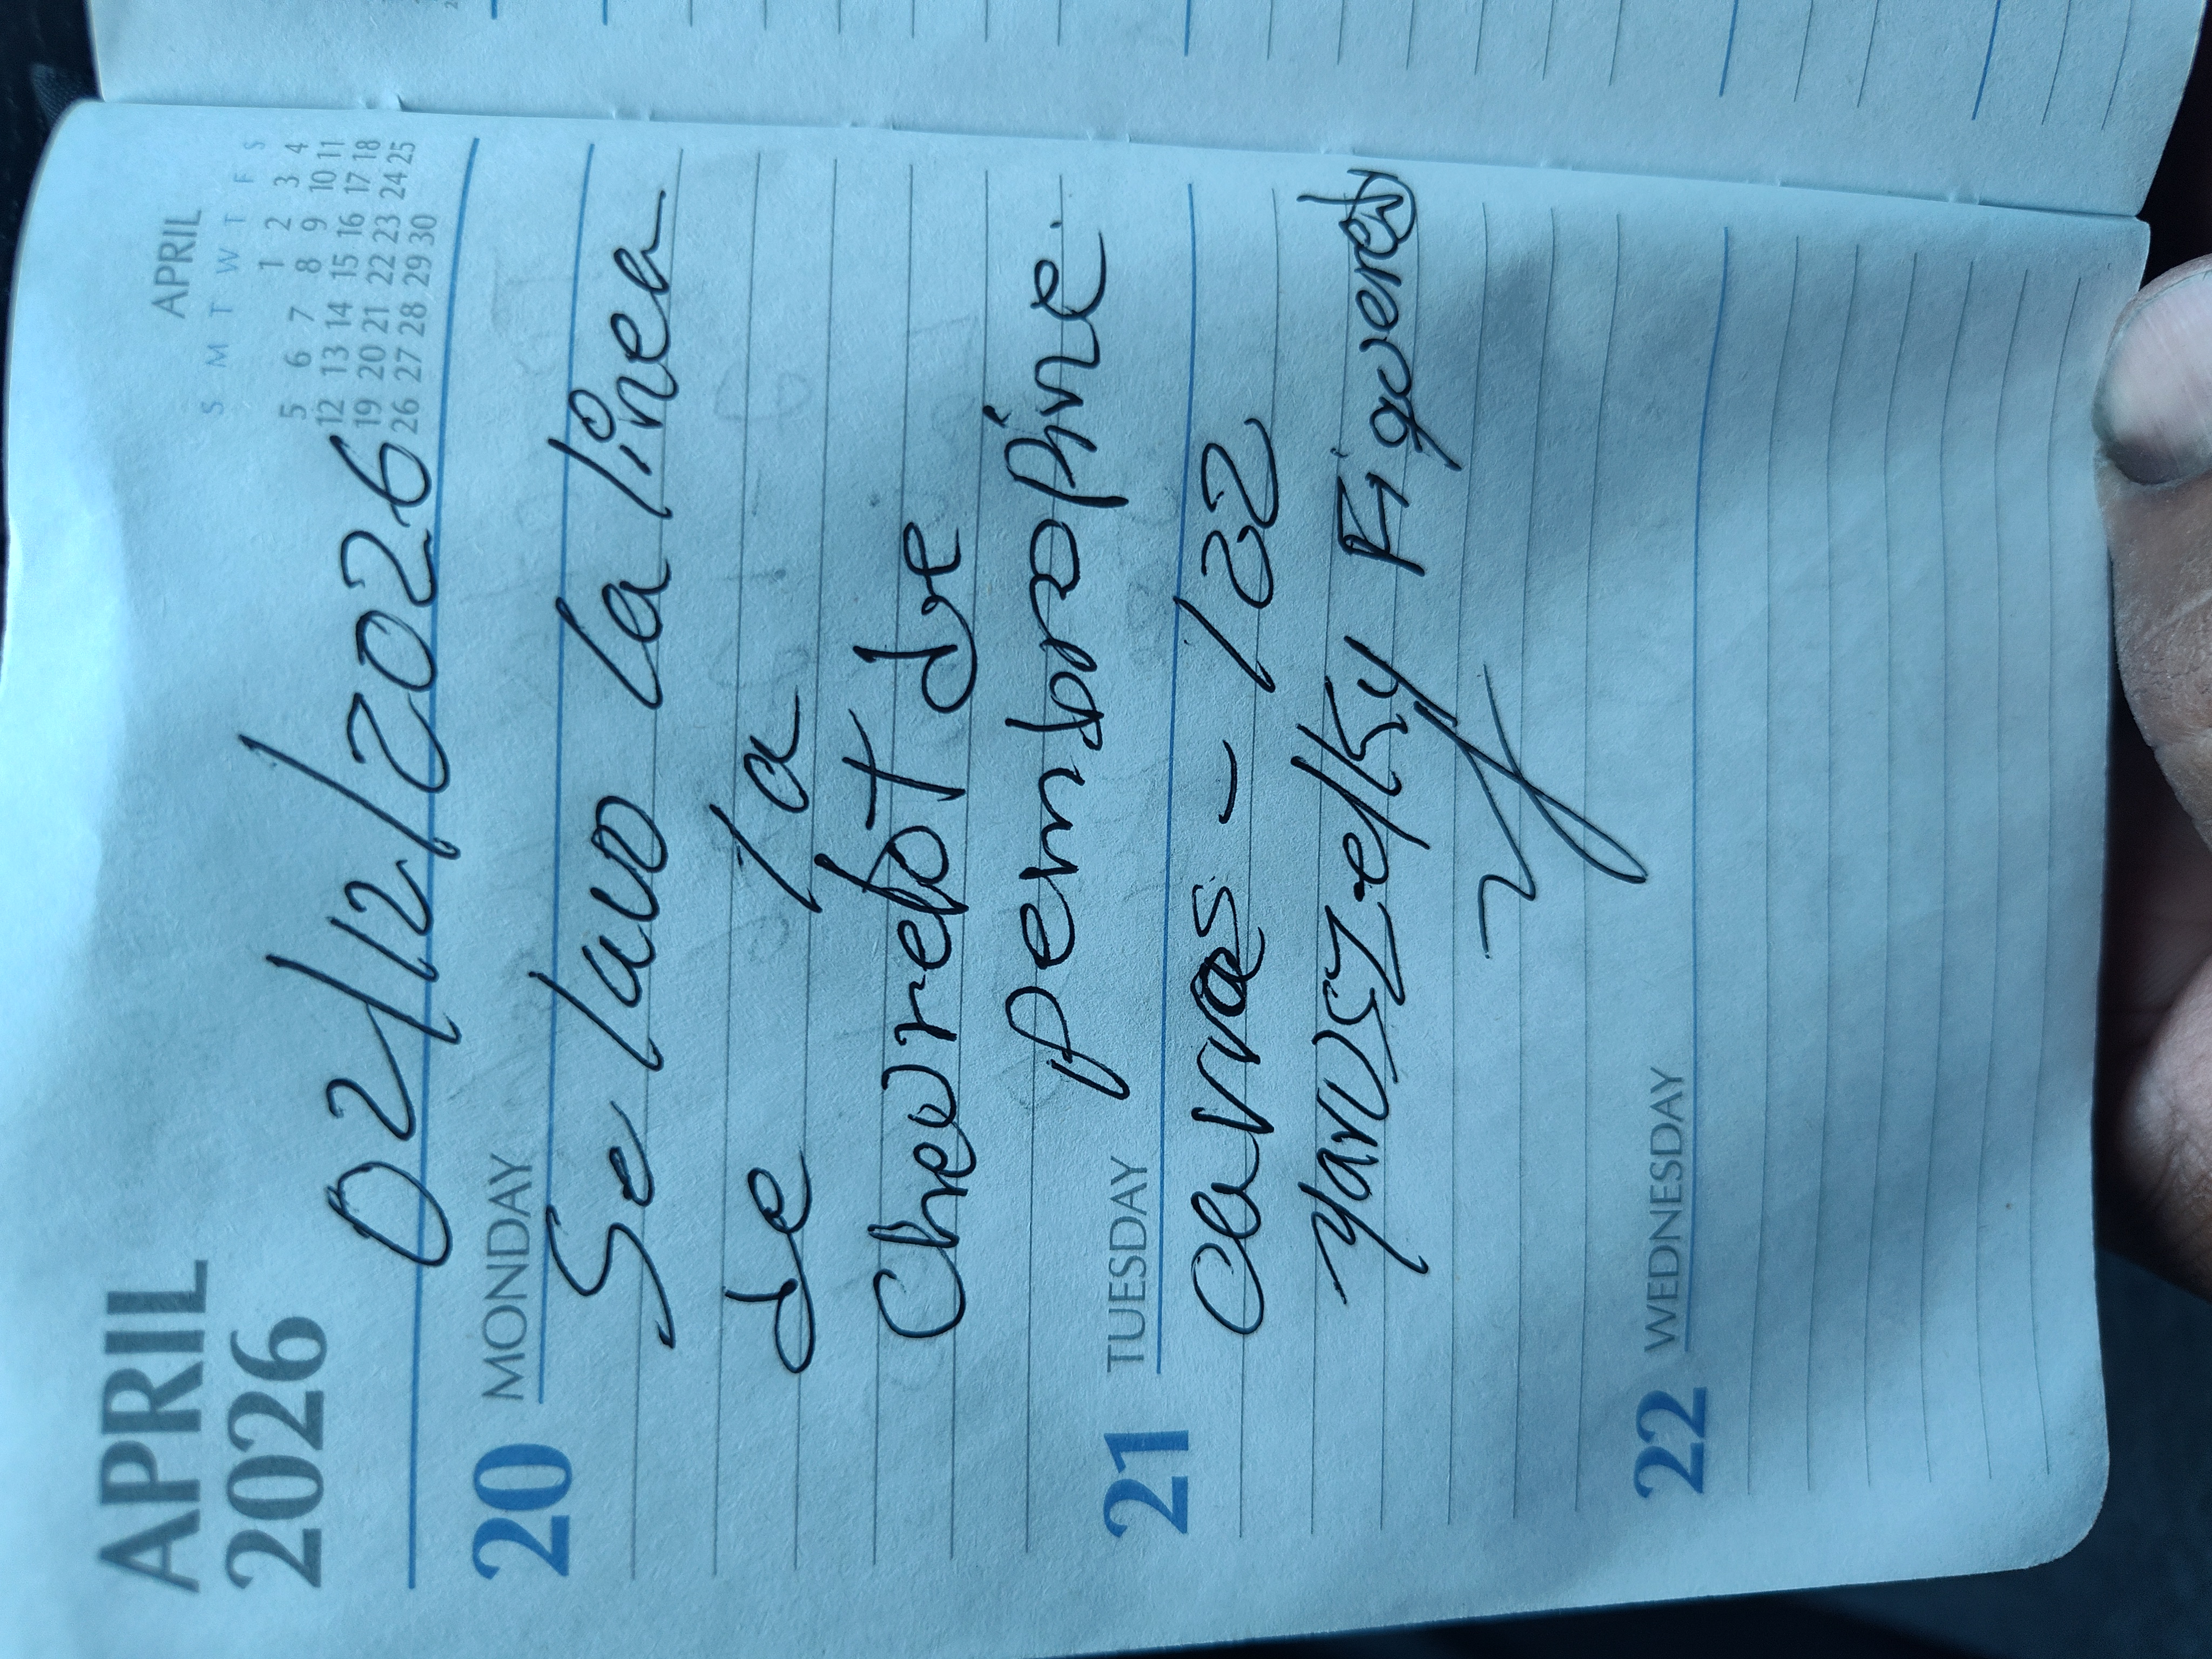 APRIL
2026
APRIL
S M T W T F S
1 2 3 4
5 6 7 8 9 10 11
12 13 14 15 16 17 18
19 20 21 22 23 24 25
26 27 28 29 30
02/12/2026
20 MONDAY
Se lavo la linea
de la
Chevrelot de
pembropine.
21 TUESDAY
canvas - 122
Yaruszelky Figueredo
22 WEDNESDAY